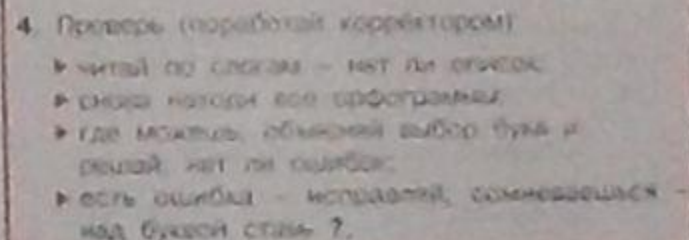 4. Проверь (поработай корректором):
▸ читай по слогам – нет ли описок;
▸ снова находи все орфограммы;
▸ где можешь, объясняй выбор букв и
решай, нет ли ошибок;
▸ есть ошибка – исправляй, сомневаешься –
над буквой ставь ?.